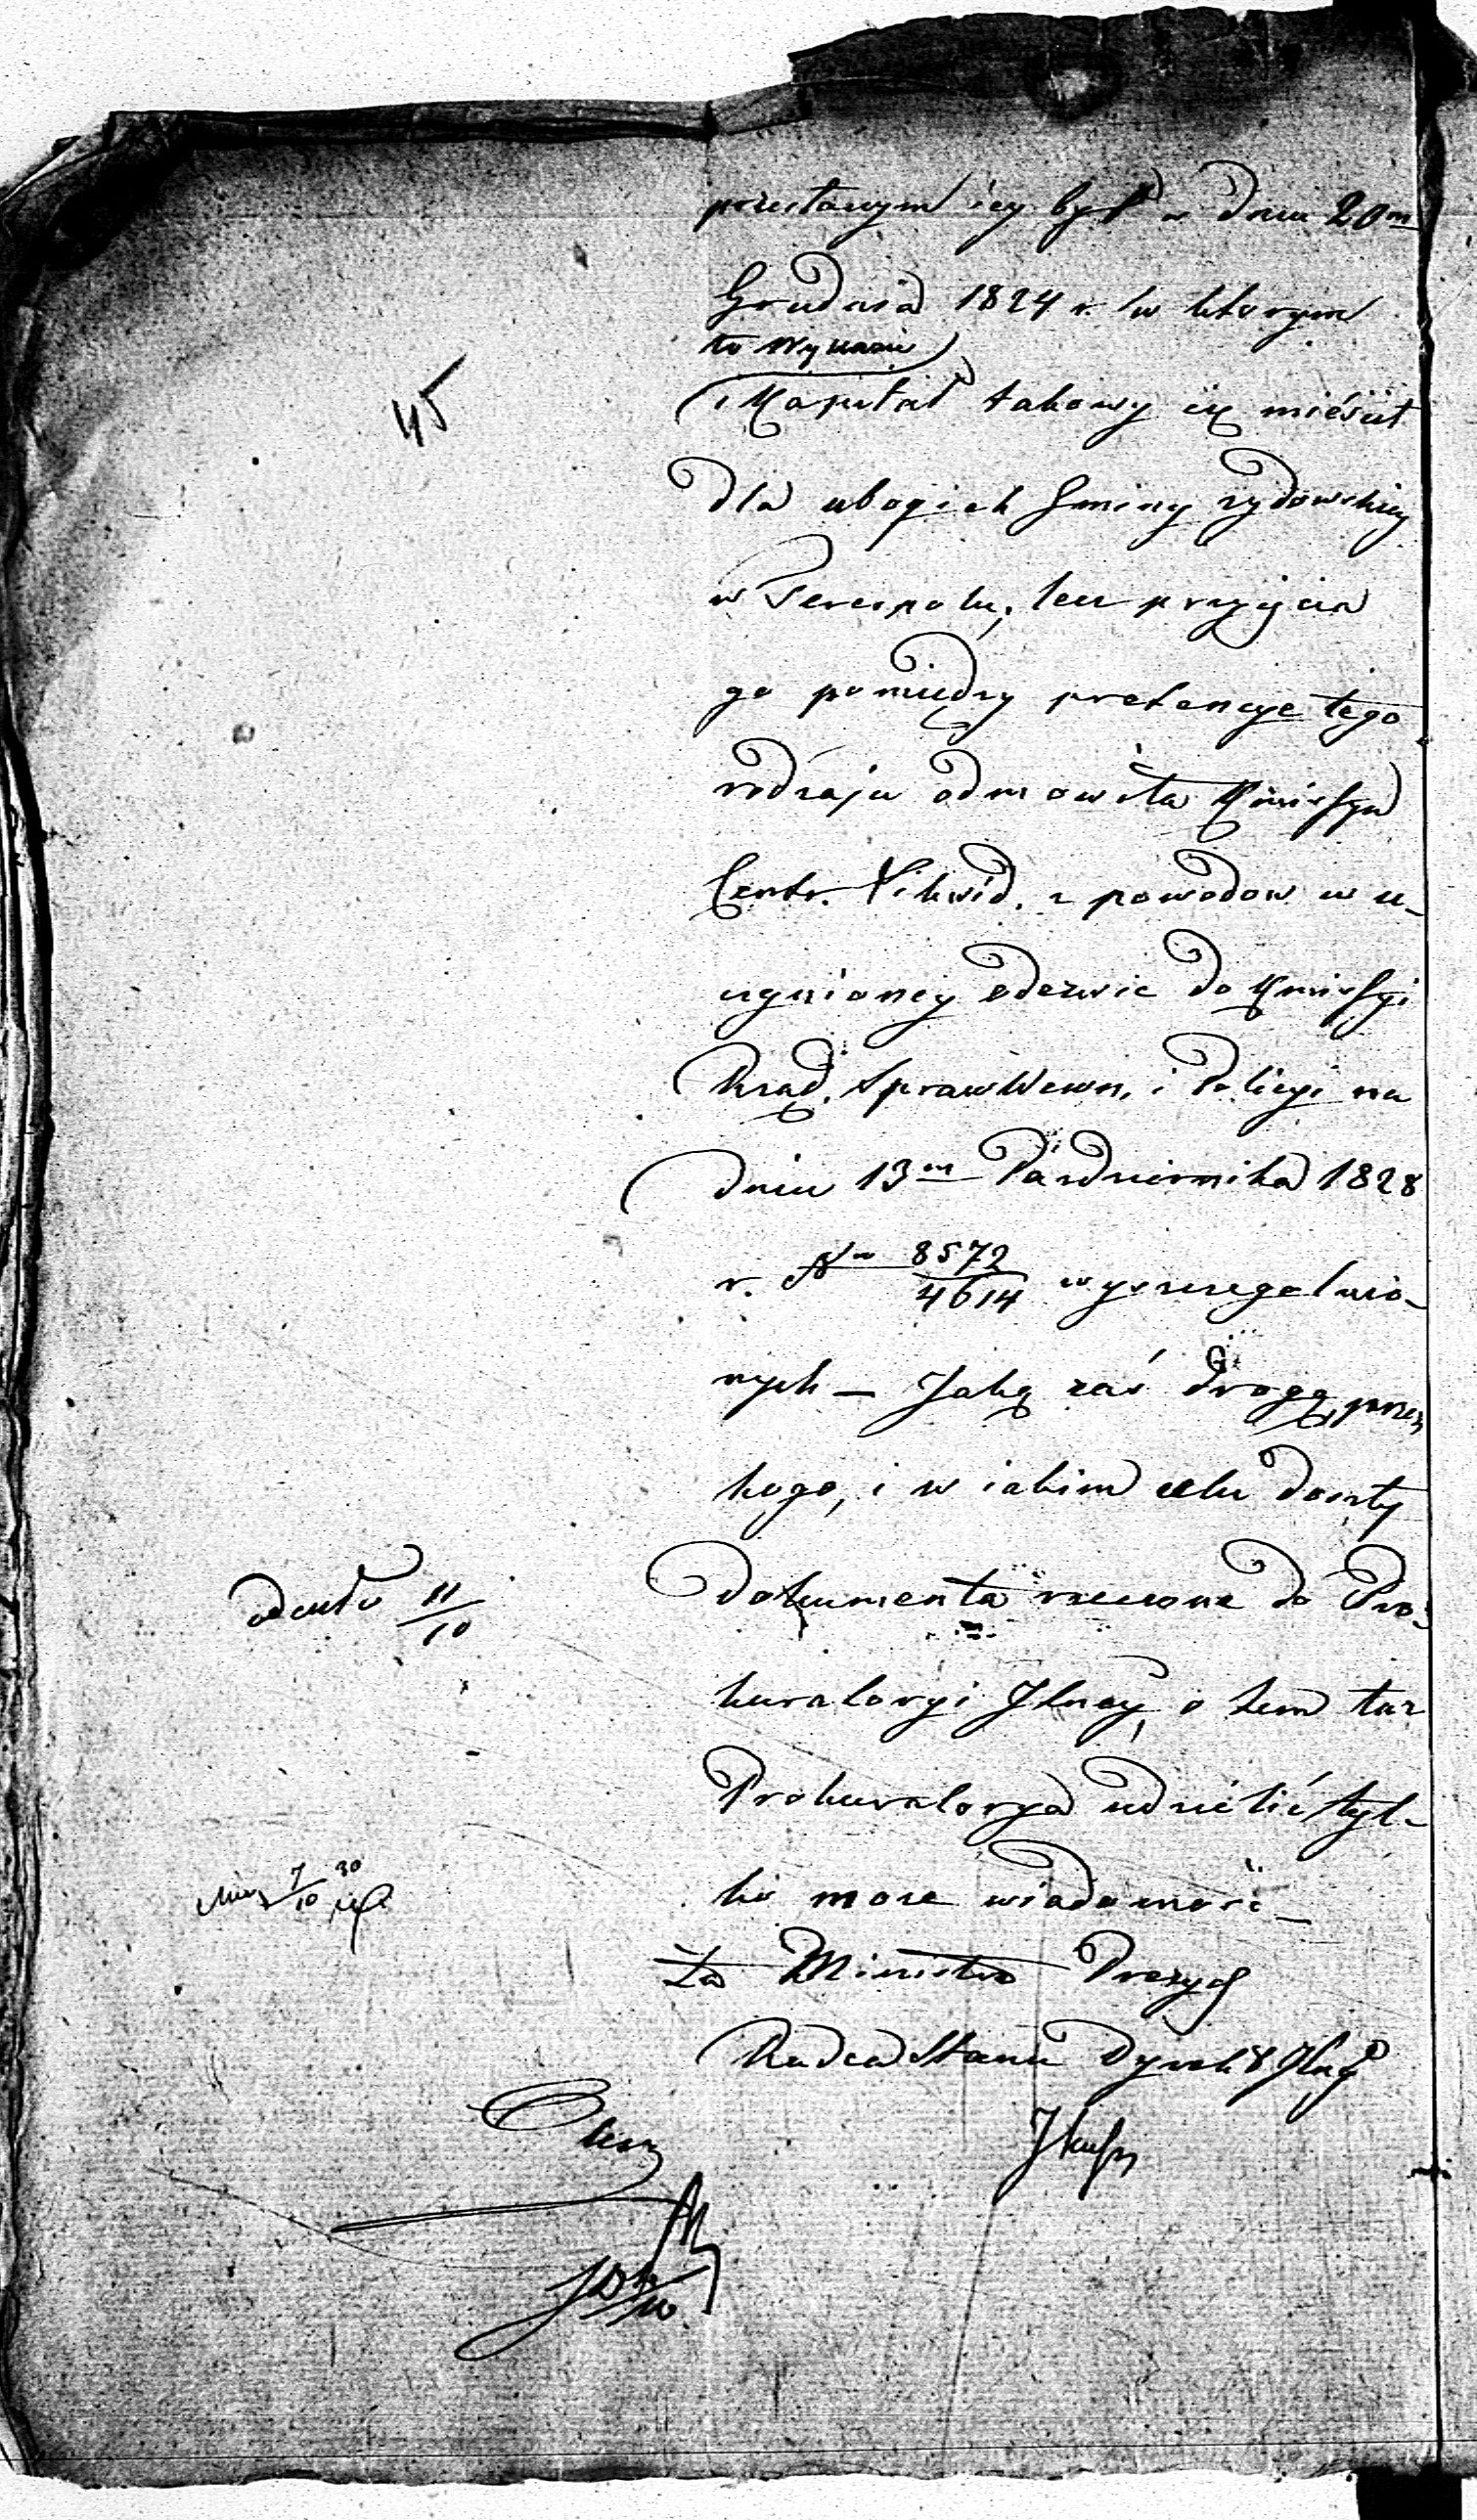 przesłanym iey był w dniu 20m
Grudnia 1824 r. w którym
to Wykazie
Kapitał takowy się mieścił
dla ubogich Gminy żydowskiey
w Terespolu, lecz przyjęcia
go pomiędzy pretensye tego
rodzaju odmówiła Kmissya
Centr. Likwid. z powodow w u-
czynioney odezwie do Kmissyi
Rząd. Spraw Wewn. i Policyi na
dniu 13m Października 1828
r. No 8572/4614 wyszczegolnio-
nych — Jaką zaś drogą, przez
kogo, i w iakim celu doszły
dokumenta rzeczone do Pro-
kuratoryi Jlney, o tem taż
Prokuratorya udzielić tyl-
ko może wiadomość —
Za Ministra Prezyd
Radca Stanu Dyrekt Jlny
45
odeszło 11/10
7/10 30